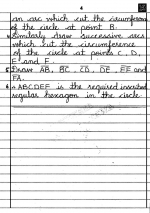 4
an arc which cut the circumference
of the circle at point B.
4. Similarly draw successive arcs
which cut the circumference
of the circle at points C, D,
E and F.
5. Draw AB, BC, CD, DE, EF and
FA.
6. ∴ ABCDEF is the required inscribed
regular hexagon in the circle.